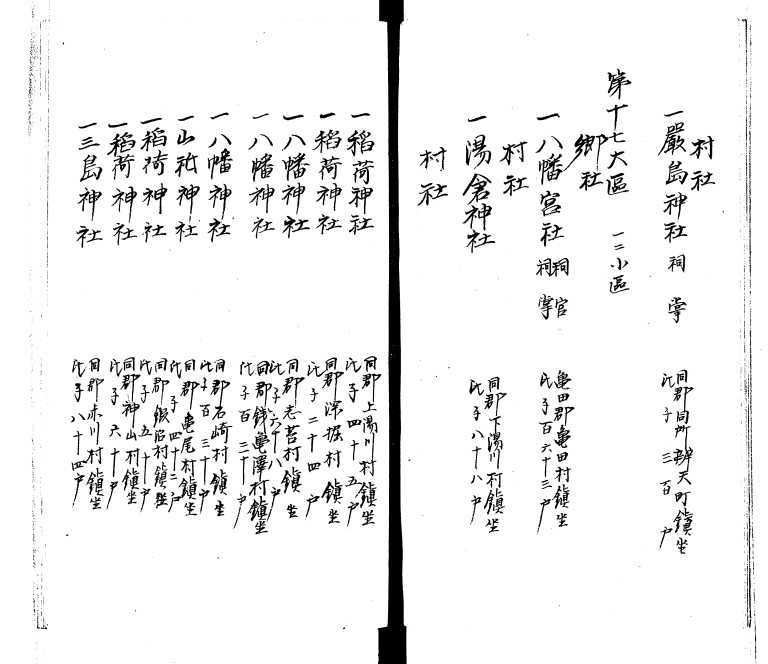 村社
一嚴島神社 祠掌
同郡同所辨天町鎮坐
氏子三百戸
第十七大區 一二小區
鄉社
一八幡宮社 祠官
祠掌
亀田郡亀田村鎮坐
氏子百六十三戸
村社
一湯倉神社
同郡下湯川村鎮坐
氏子八十八戸
村社
一稲荷神社
同郡上湯川村鎮坐
氏子四十五戸
一稲荷神社
同郡深掘村鎮坐
氏子二十四戸
一八幡神社
同郡志苔村鎮坐
氏子六十八戸
一八幡神社
同郡錢亀澤村鎮坐
氏子百三十戸
一八幡神社
同郡石崎村鎮坐
氏子百三十戸
一山祇神社
同郡亀尾村鎮坐
氏子四十二戸
一稲荷神社
同郡鍛冶村鎮坐
氏子五十戸
一稲荷神社
同郡神山村鎮坐
氏子六十戸
一三島神社
同郡赤川村鎮坐
氏子八十四戸